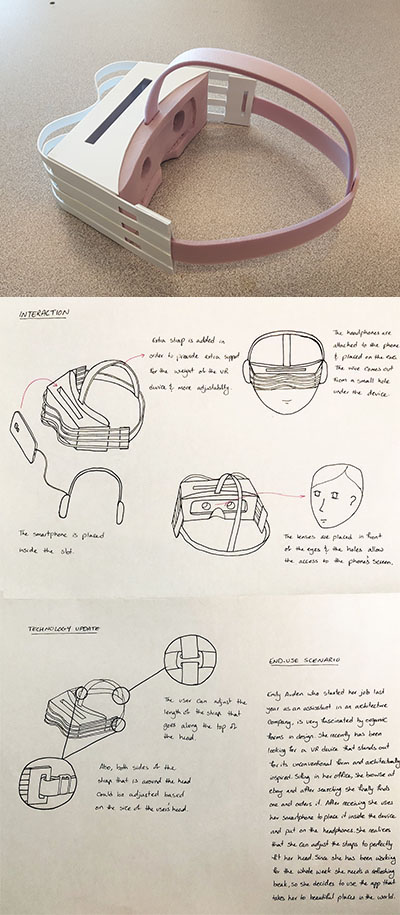 INTERACTION
Extra strap is added in
order to provide extra support
for the weight of the VR
device & more adjustability.
The headphones are
attached to the phone
& placed on the ears.
The wire comes out
from a small hole
under the device.
The smartphone is placed
inside the slot.
The lenses are placed in front
of the eyes & the holes allow
the access to the phone's screen.
TECHNOLOGY UPDATE
The user can adjust the
length of the strap that
goes along the top of
the head.
Also, both sides of the
strap that is around the head
could be adjusted based
on the size of the user's head.
END-USE SCENARIO
Emily who started her job last
year as an assistant in an architecture
company, is very fascinated by organic
forms in design. She recently has been
looking for a VR device that stands out
for its unconventional form and architecturally
inspired. Sitting in her office, she browse at
ebay and after searching she finally finds
one and orders it. After receiving she uses
her smartphone to place it inside the device
and put on the headphones. She realises
that she can adjust the straps to perfectly
fit her head. Since she has been working
for the whole week she needs a refreshing
break, so she decides to use the app that
takes her to beautiful places in the world.